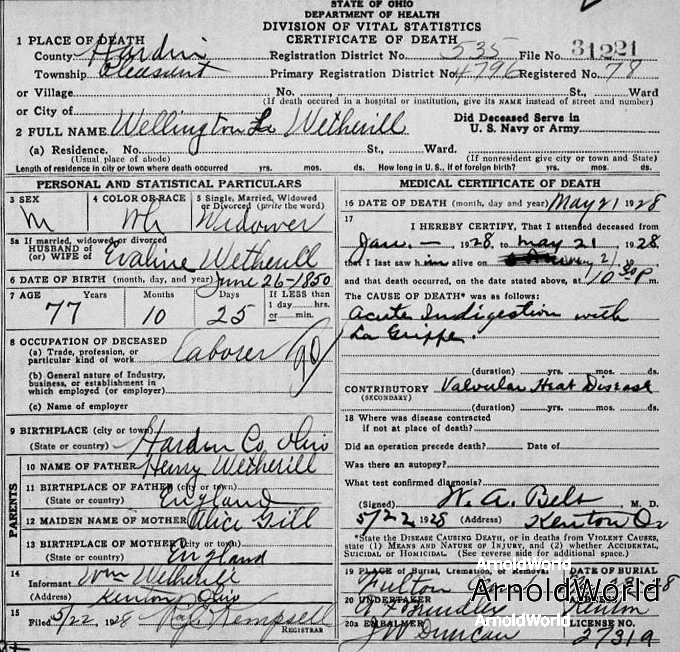 STATE OF OHIO
DEPARTMENT OF HEALTH
DIVISION OF VITAL STATISTICS
CERTIFICATE OF DEATH
1 PLACE OF DEATH
County Hardin Registration District No. 535 File No. 31221
Township Pleasant Primary Registration District No. 4796 Registered No. 78
or Village No. St., Ward
or City of (If death occured in a hospital or institution, give its NAME instead of street and number)
2 FULL NAME Wellington L Wetherill Did Deceased Serve in U. S. Navy or Army
(a) Residence. No. St., Ward.
(Usual place of abode) (If nonresident give city or town and State)
Length of residence in city or town where death occurred yrs. mos. ds. How long in U. S., if of foreign birth? yrs. mos. ds.
PERSONAL AND STATISTICAL PARTICULARS
3 SEX 4 COLOR OR RACE 5 Single, Married, Widowed or Divorced (write the word)
M Wh Widower
5a If married, widowed or divorced
HUSBAND of
(or) WIFE of Evaline Wetherill
6 DATE OF BIRTH (month, day, and year) June 26-1850
7 AGE Years Months Days If LESS than 1 day, hrs. or min.
77 10 25
8 OCCUPATION OF DECEASED
(a) Trade, profession, or particular kind of work Laborer
(b) General nature of Industry, business, or establishment in which employed (or employer)
(c) Name of employer
9 BIRTHPLACE (city or town)
(State or country) Hardin Co. Ohio
PARENTS
10 NAME OF FATHER Henry Wetherill
11 BIRTHPLACE OF FATHER (city or town)
(State or country) England
12 MAIDEN NAME OF MOTHER Alice Gill
13 BIRTHPLACE OF MOTHER (city or town)
(State or country) England
14
Informant Wm Wetherill
(Address) Kenton Ohio
15
Filed 5/22, 1928 Kempsell
REGISTRAR
MEDICAL CERTIFICATE OF DEATH
16 DATE OF DEATH (month, day, and year) May 21 1928
17
I HEREBY CERTIFY, That I attended deceased from
Jan. -, 1928, to May 21, 1928
that I last saw him alive on May 21
and that death occured, on the date stated above, at 10 30 p m.
The CAUSE OF DEATH* was as follows:
Acute Indigestion with
La Grippe.
(duration) yrs. mos. ds.
CONTRIBUTORY Valvular Heat Disease
(SECONDARY)
(duration) yrs. mos. ds.
18 Where was disease contracted
if not at place of death?
Did an operation precede death? Date of
Was there an autopsy?
What test confirmed diagnosis?
(Signed) W. A. Belt M. D.
5/22 1928 (Address) Kenton O
*State the DISEASE CAUSING DEATH, or in deaths from VIOLENT CAUSES, state (1) MEANS AND NATURE OF INJURY, and (2) whether ACCIDENTAL, SUICIDAL or HOMICIDAL. (See reverse side for additional space.)
19 PLACE of Burial, Cremation, or Removal DATE OF BURIAL
Fulton
20 UNDERTAKER Kenton
20a EMBALMER LICENSE NO.
J W Duncan 2731a
ArnoldWorld
ArnoldWorld
ArnoldWorld